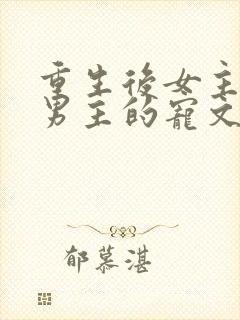 重生後女主
男主的寵文
郁慕湛